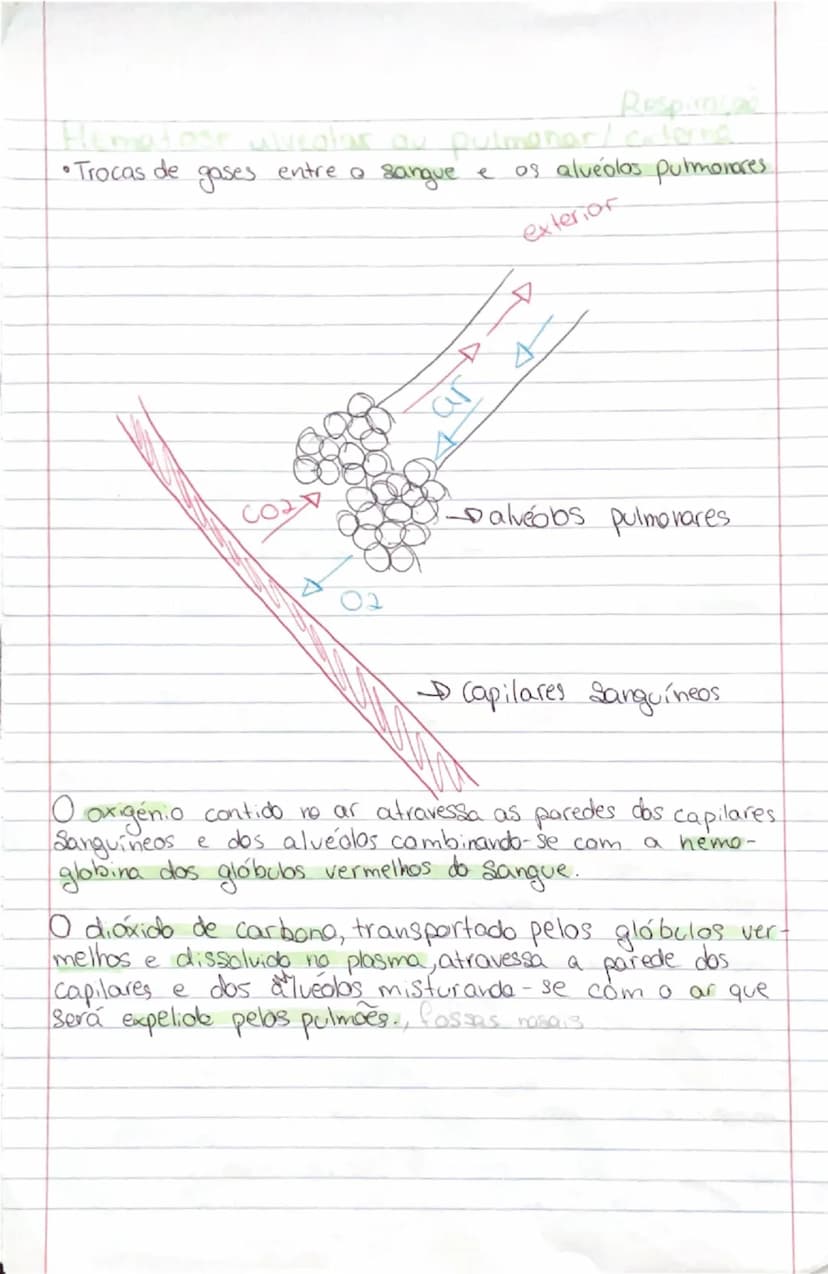 Respiração
Hematose alveolar ou pulmonar/externa
•Trocas de gases entre o sangue e os alvéolos pulmonares
exterior
ar
CO2
alvéolos pulmonares
O2
Capilares Sanguíneos
O oxigénio contido no ar atravessa as paredes dos capilares
Sanguíneos e dos alvéolos combinando-se com a hemo-
globina dos glóbulos vermelhos do Sangue.
O dióxido de carbono, transportado pelos glóbulos ver-
melhos e dissolvido no plasma, atravessa a parede dos
capilares e dos alvéolos misturando-se com o ar que
será expelido pelos pulmões., fossas nasais